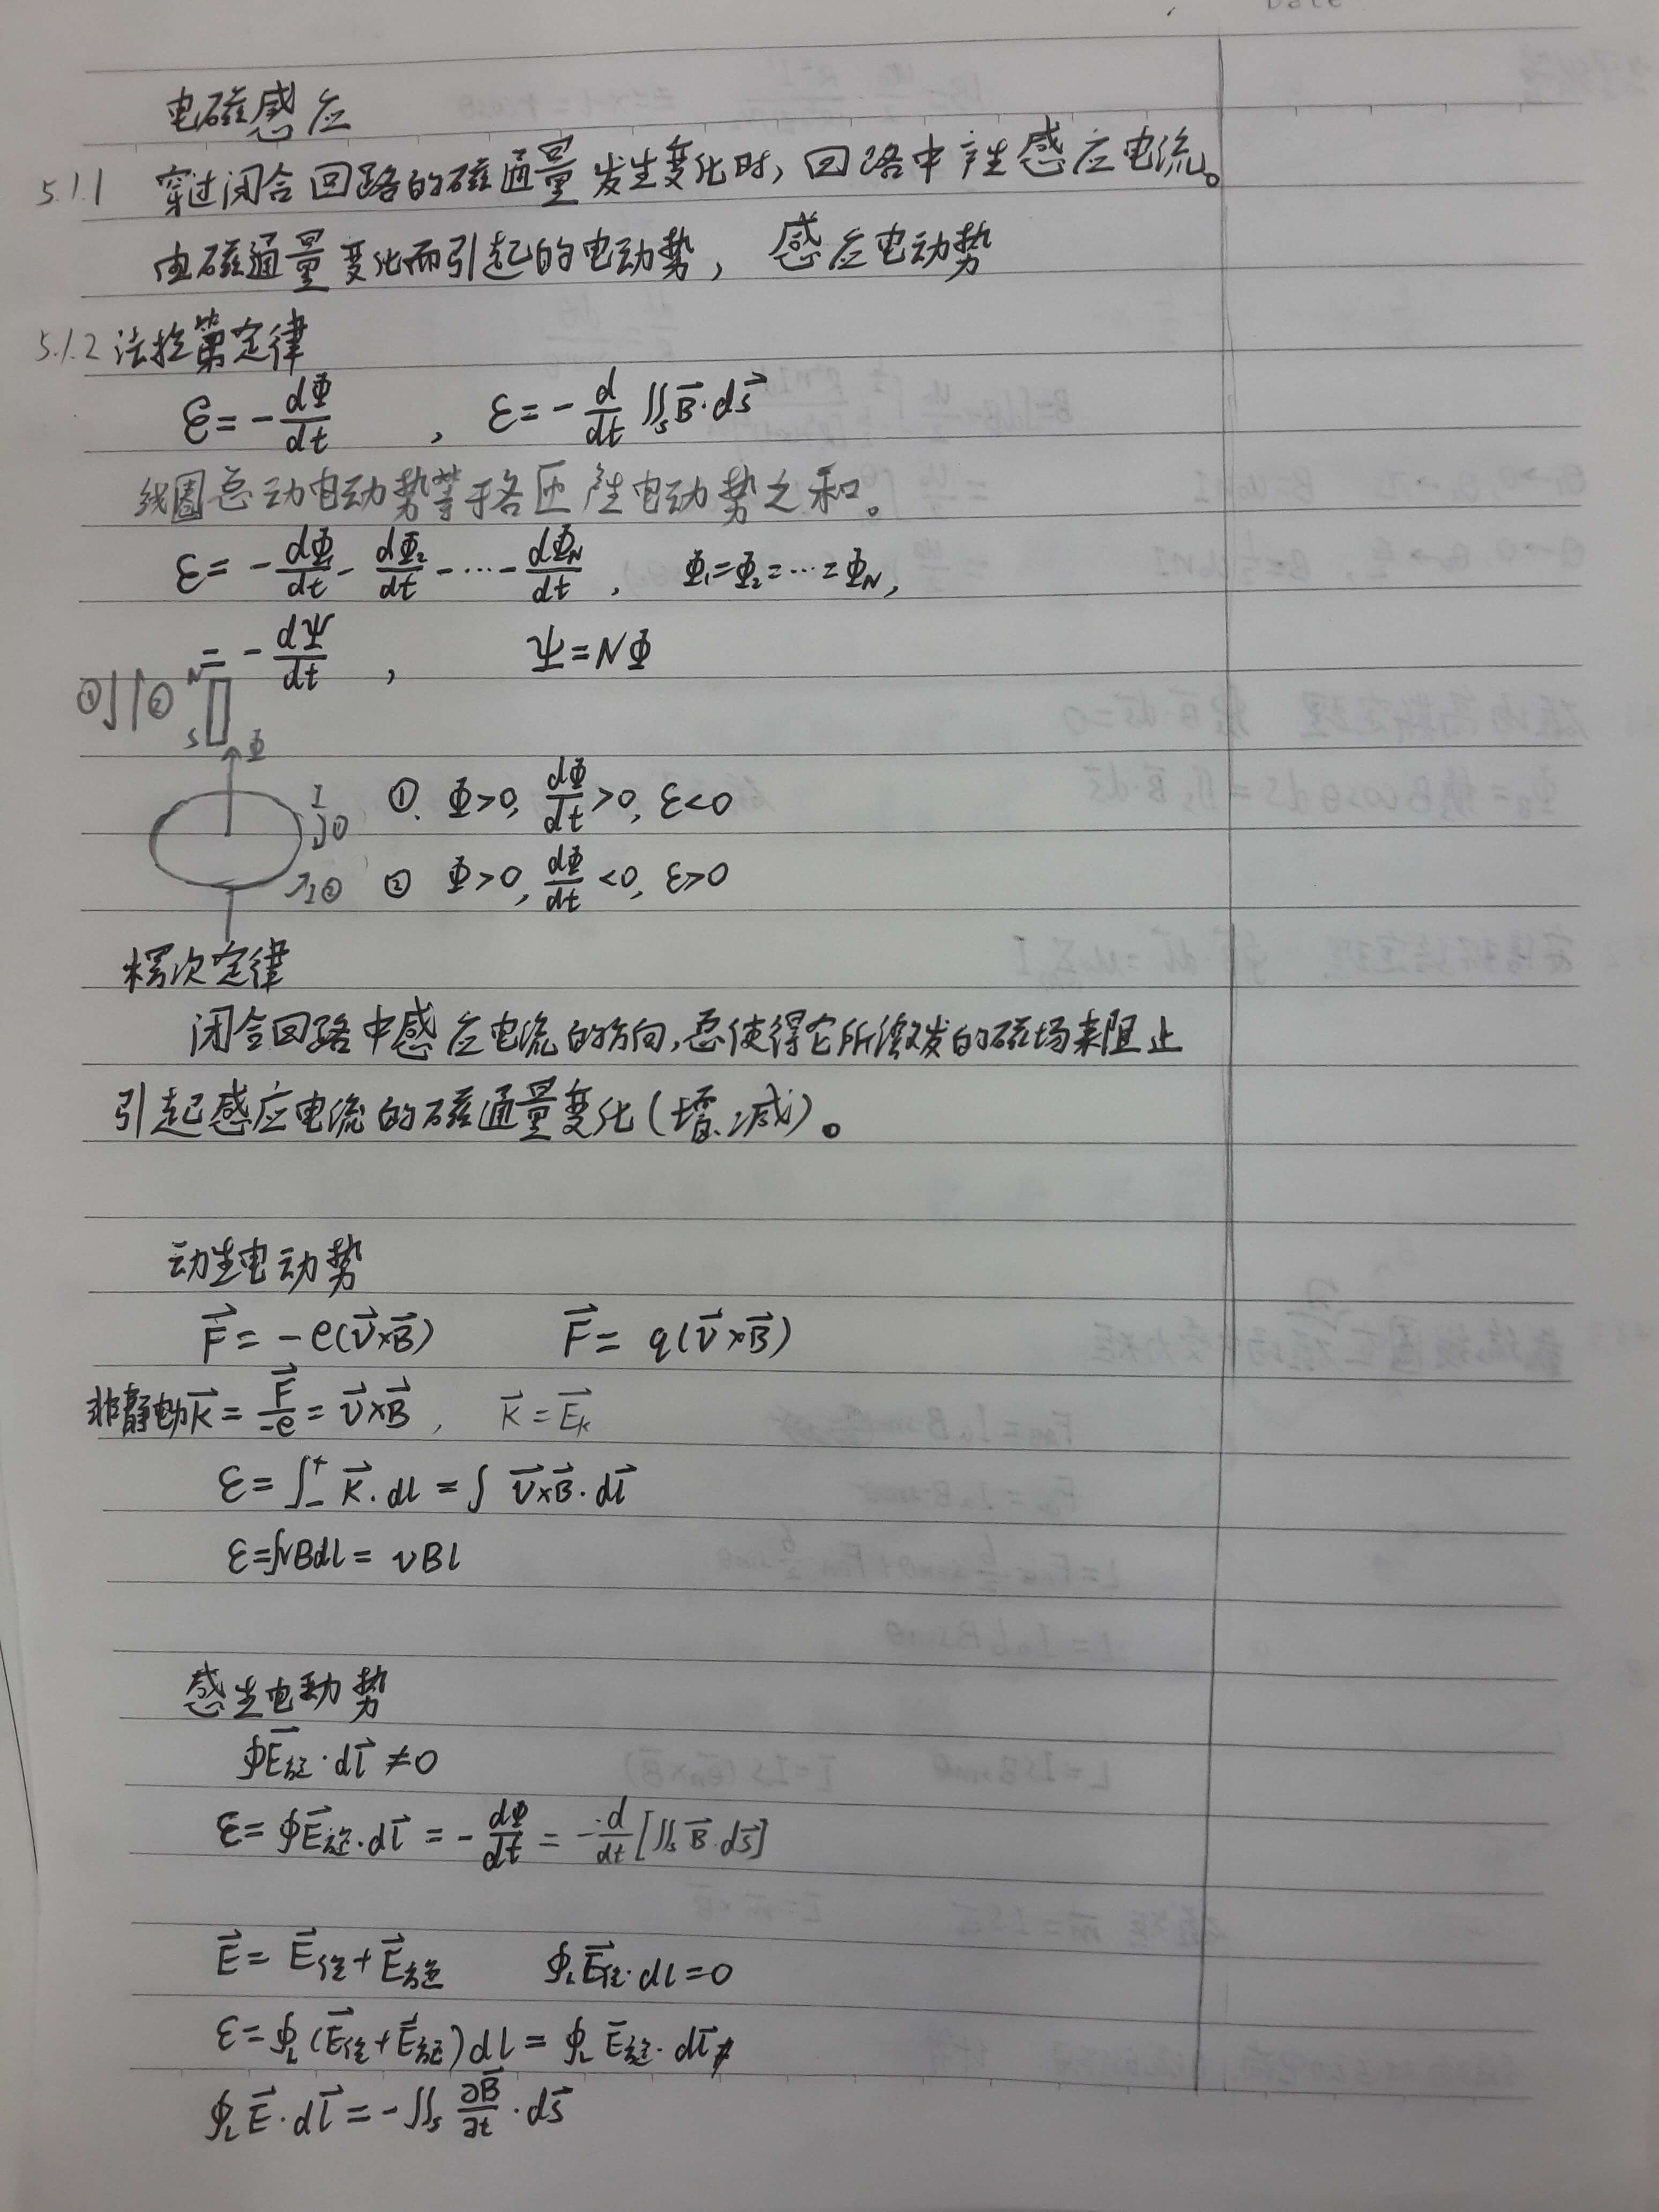 Date
电磁感应
5.1.1 穿过闭合回路的磁通量发生变化时，回路中产生感应电流。
由磁通量变化而引起的电动势，感应电动势
5.1.2 法拉第定律
ε=-dΦ/dt ， ε=-d/dt ∬ₛB⃗·ds⃗
线圈总动电动势等于各匝产生电动势之和。
ε=-dΦ₁/dt-dΦ₂/dt-…-dΦ_N/dt ， Φ₁=Φ₂=…=Φ_N，
=-dΨ/dt ， Ψ=NΦ
① ② N
S Φ
I ① ①. Φ>0, dΦ/dt>0, ε<0
I② ② Φ>0, dΦ/dt<0, ε>0
楞次定律
闭合回路中感应电流的方向,总使得它所激发的磁场来阻止
引起感应电流的磁通量变化(增.减)。
动生电动势
F⃗=-e(v⃗×B⃗) F⃗=q(v⃗×B⃗)
非静电力K⃗=F⃗/-e=v⃗×B⃗ ， K⃗=E⃗ₖ
ε=∫₋⁺K⃗·dl=∫v⃗×B⃗·dl⃗
ε=∫vBdl=vBl
感生电动势
∮E⃗旋·dl⃗≠0
ε=∮E⃗旋·dl⃗=-dΦ/dt=-d/dt[∬ₛB⃗·ds⃗]
E⃗=E⃗位+E⃗旋 ∮_L E⃗位·dl=0
ε=∮_L(E⃗位+E⃗旋)dl=∮_L E⃗旋·dl⃗
∮_L E⃗·dl⃗=-∬ₛ ∂B⃗/∂t·ds⃗